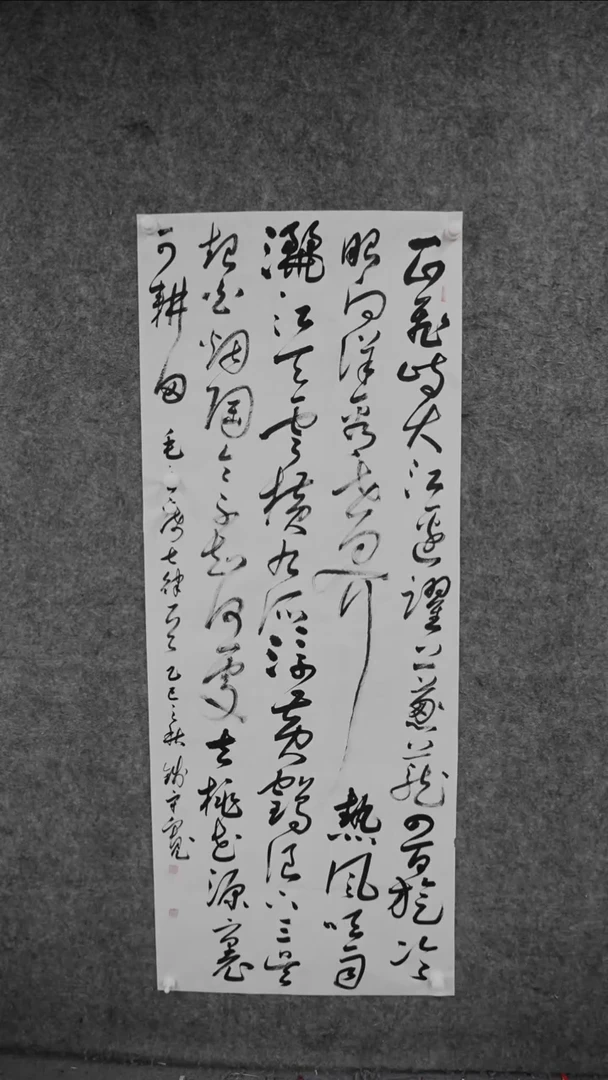 一山飛峙大江邊躍上葱蘢四百旋冷
眼向洋看世界熱風吹雨
灑江天雲橫九派浮黃鶴浪下三吳
起白烟陶令不知何處去桃花源裏
可耕田
毛七律乙巳之秋